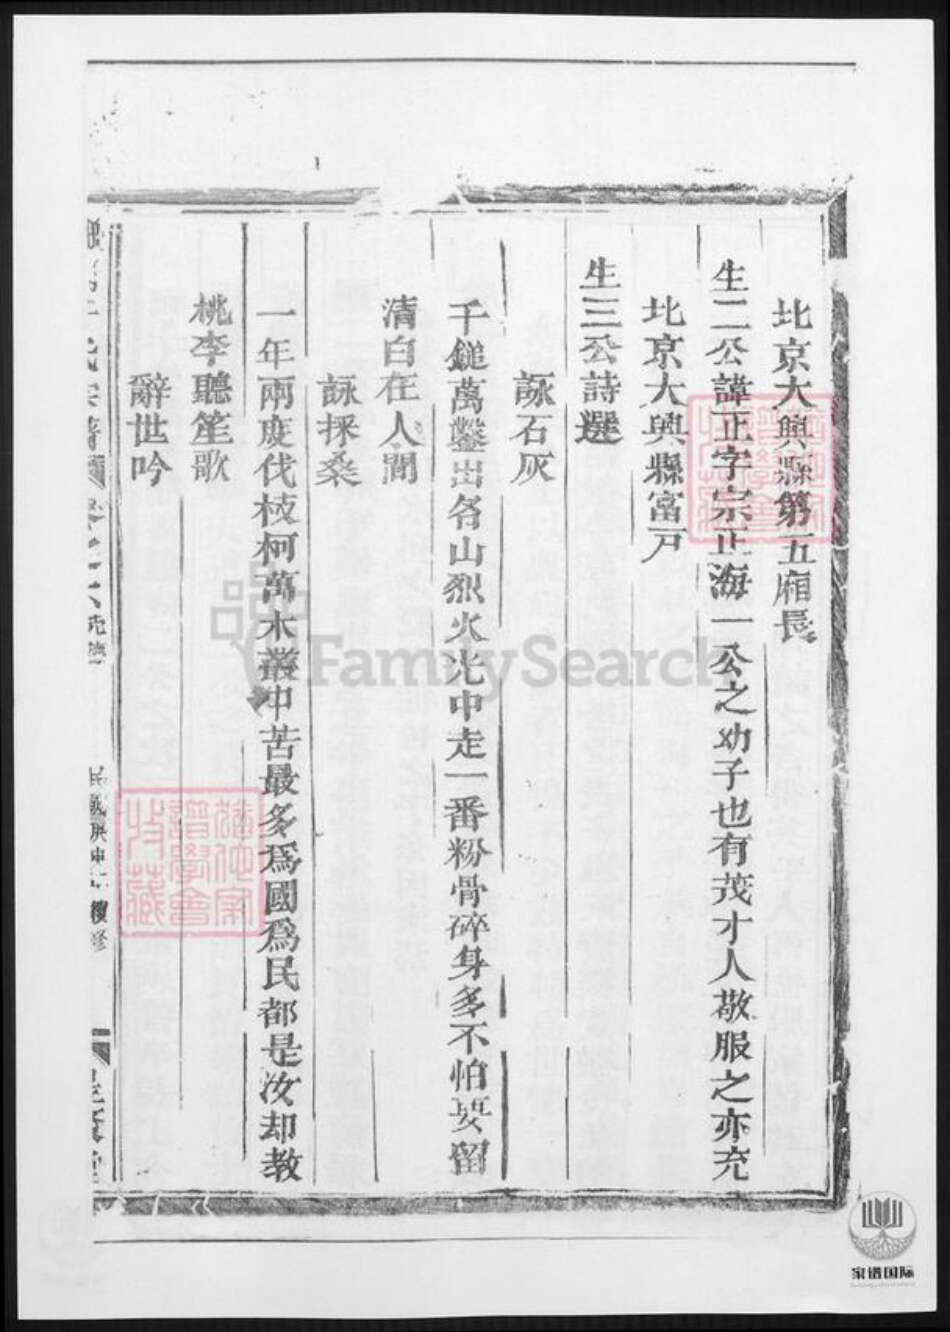 北京大興縣第五廂長
生二公諱正字宗正海一公之幼子也有茂才人敬服之亦充
北京大興縣富戶
生三公詩選
詠石灰
千鎚萬鑿出名山烈火光中走一番粉骨碎身多不怕要留
清白在人間
詠採桑
一年兩度伐枝柯萬木叢中苦最多爲國爲民都是汝却教
桃李聽笙歌
辭世吟
FamilySearch
家谱国际